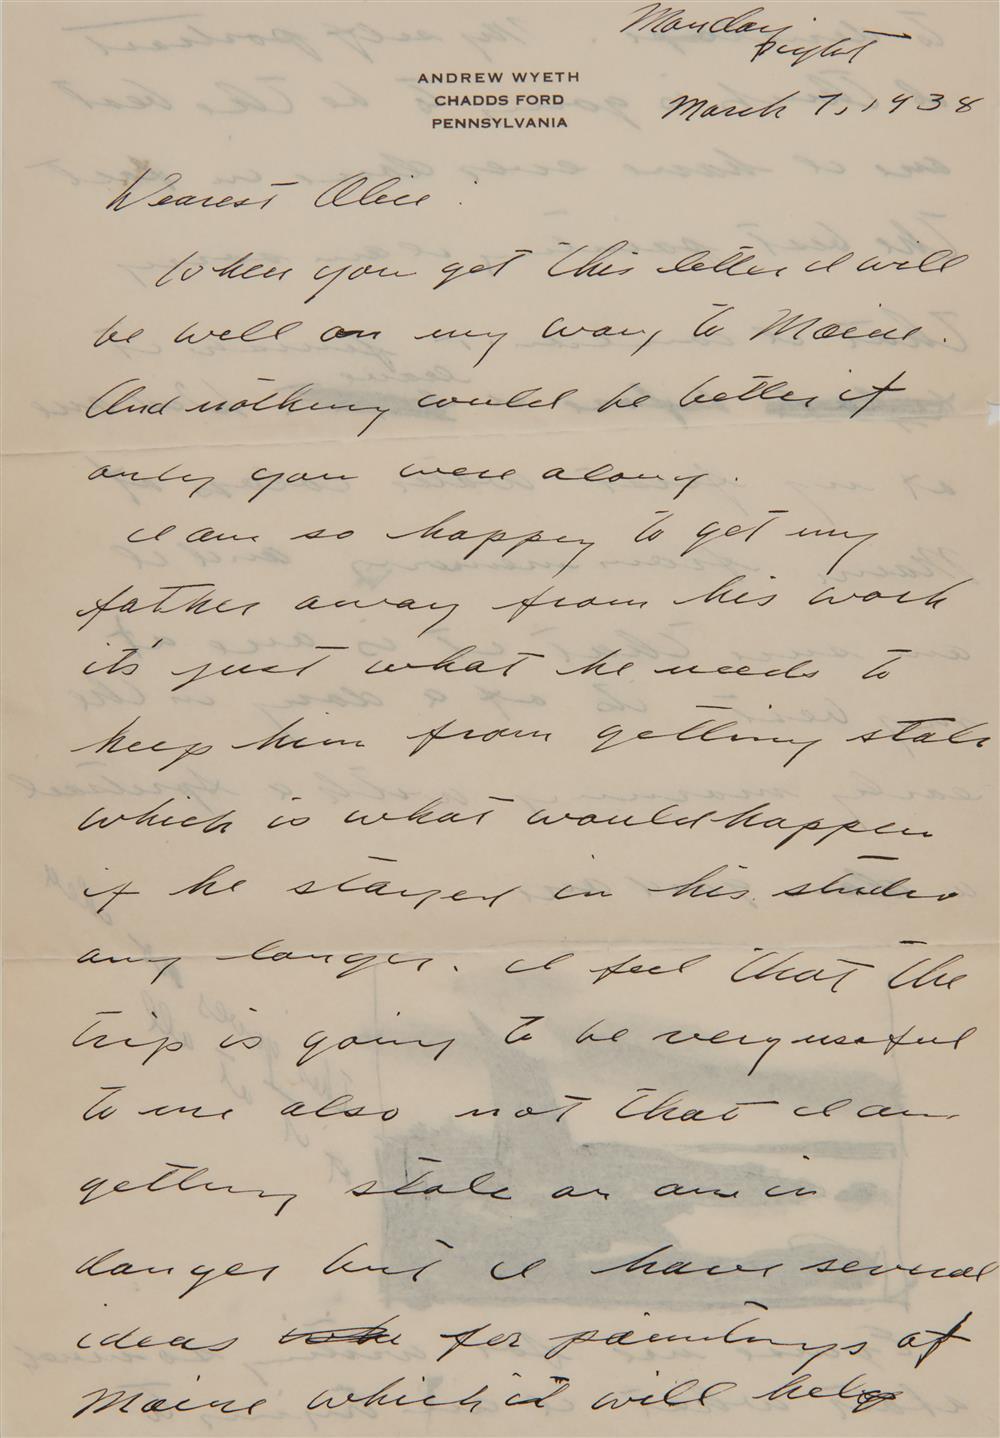 Monday
night
ANDREW WYETH
CHADDS FORD
PENNSYLVANIA
March 7, 1938
Dearest Alice:
When you get this letter I will
be well on my way to Maine.
And nothing would be better if
only you were along.
I am so happy to get my
father away from his work
it's just what he needs to
keep him from getting stale
which is what would happen
if he stayed in his studio
any longer. I feel that the
trip is going to be very useful
to me also not that I am
getting stale or am in
danger but I have several
ideas for paintings of
Maine which it will help